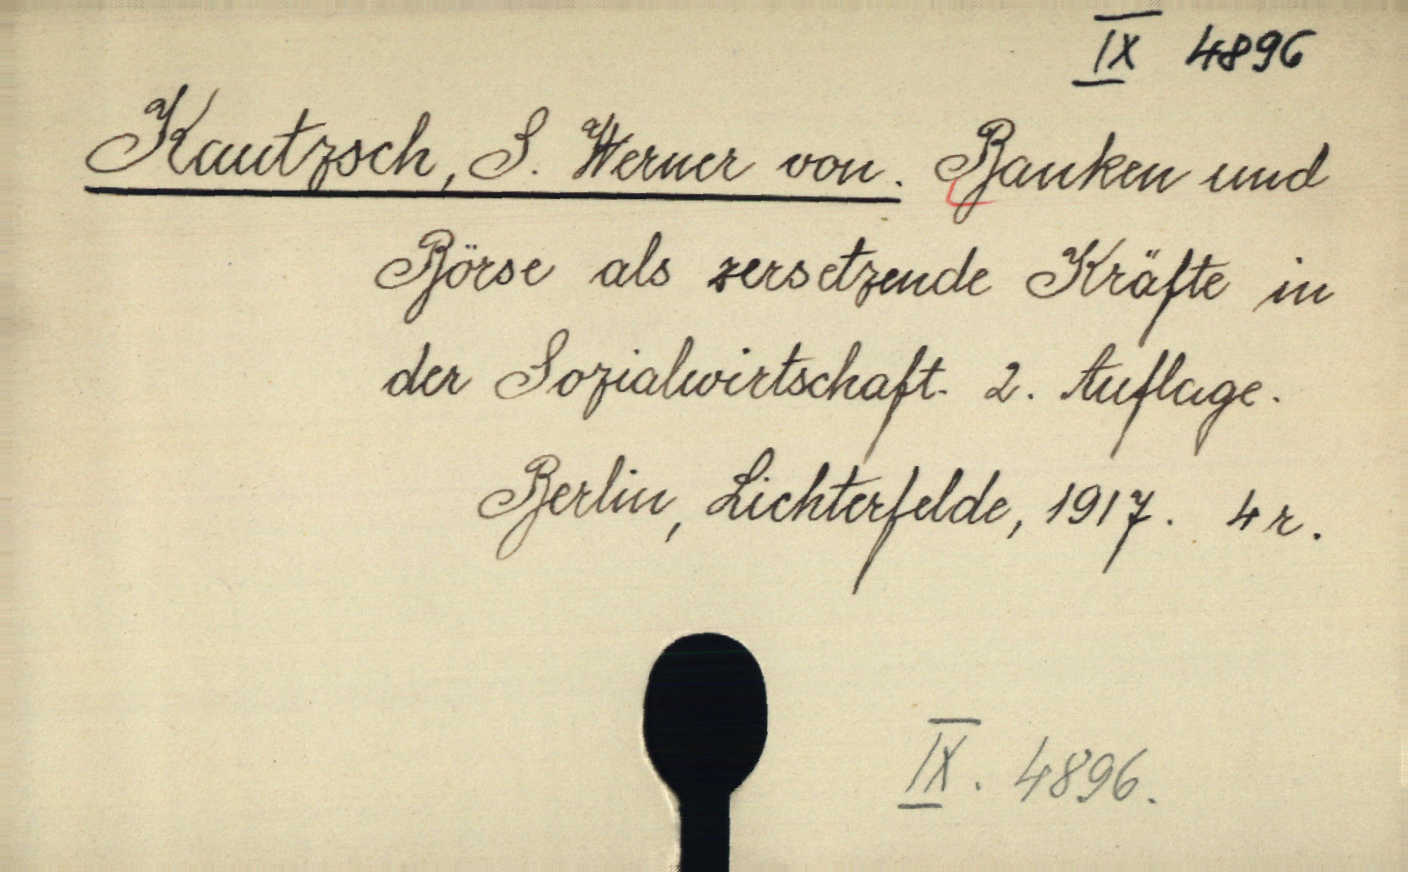 IX 4896
Kautzsch, S. Werner von. Banken und
Börse als zersetzende Kräfte in
der Sozialwirtschaft. 2. Auflage.
Berlin, Lichterfelde, 1917. 4 r.
IX. 4896.